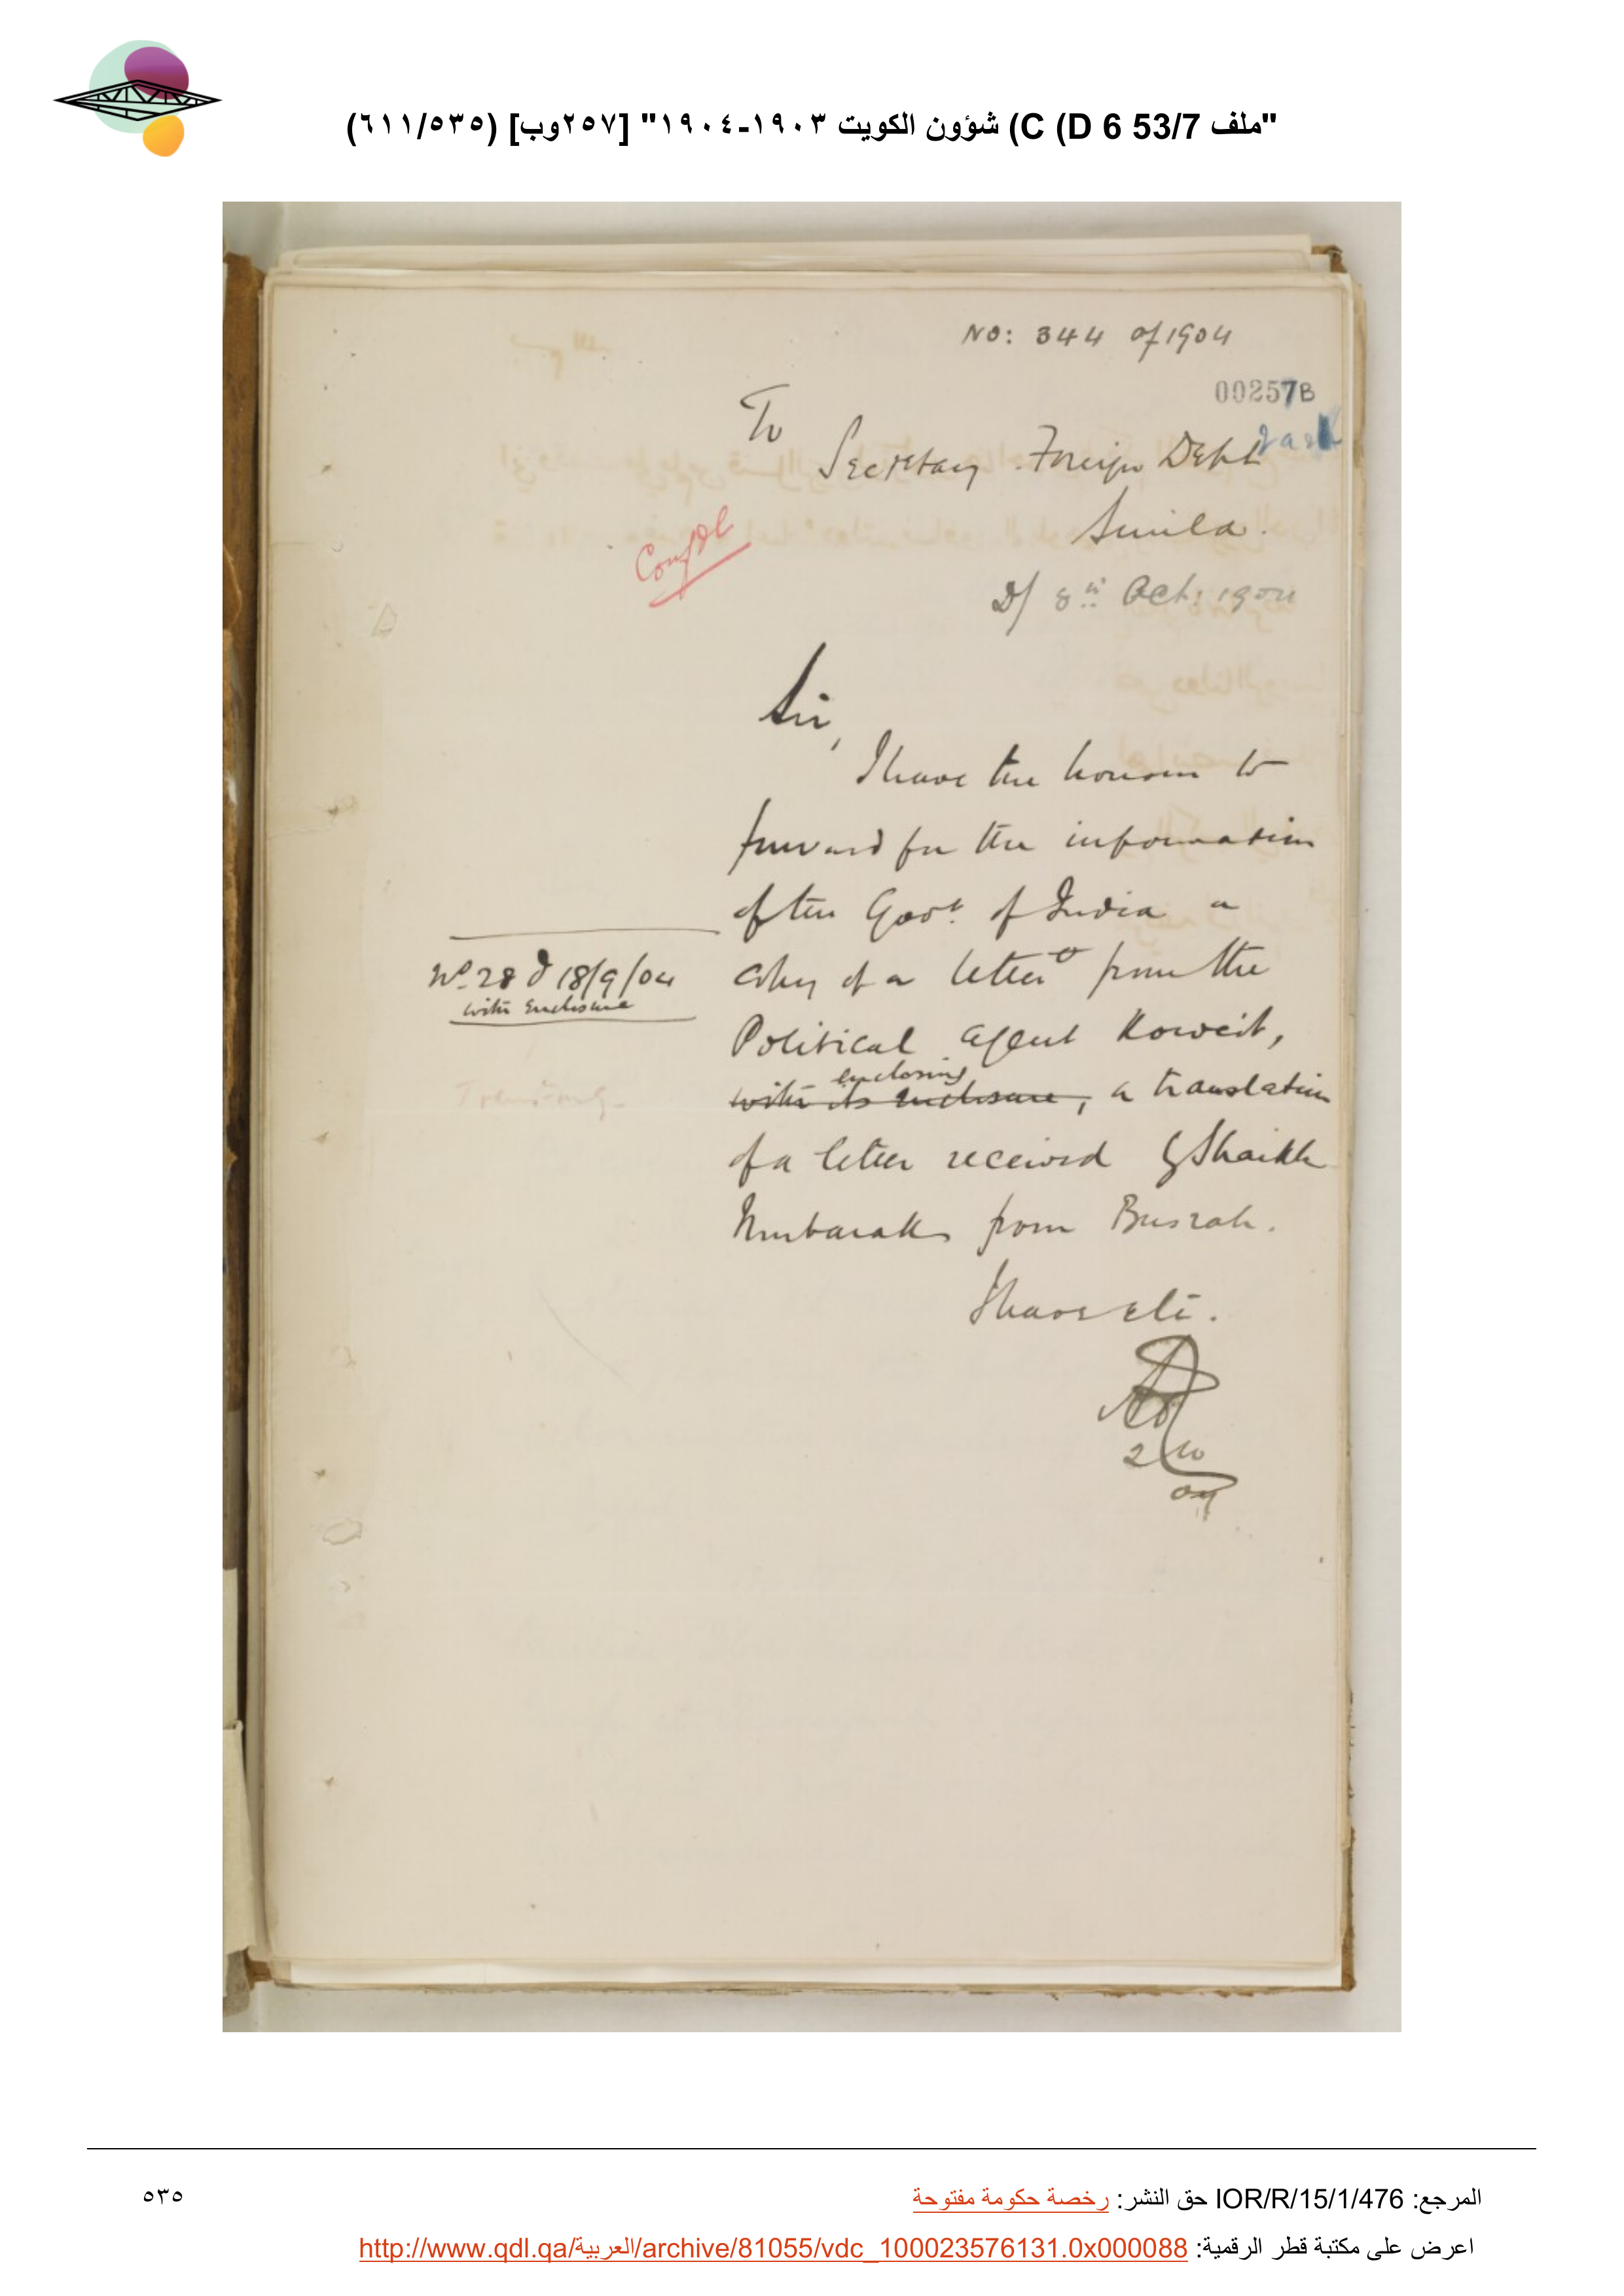 "ملف 53/7 6 C (D) شؤون الكويت ١٩٠٣-١٩٠٤" [٢٥٧وب] (٦١١/٥٣٥)
NO: 344 of 1904
00257B
To
Secretary Foreign Dept
Simla.
Confdl
D/ 8th Oct: 1904
Sir,
I have the honour to
forward for the information
of the Govt. of India a
No. 28 d 18/9/04
with enclosure
copy of a letter from the
Political Agent Koweit,
enclosing
with its enclosure, a translation
of a letter received by Shaikh
Mubarak from Busrah.
I have etc.
2/10
04
المرجع: IOR/R/15/1/476 حق النشر: رخصة حكومة مفتوحة
٥٣٥
اعرض على مكتبة قطر الرقمية: http://www.qdl.qa/العربية/archive/81055/vdc_100023576131.0x000088